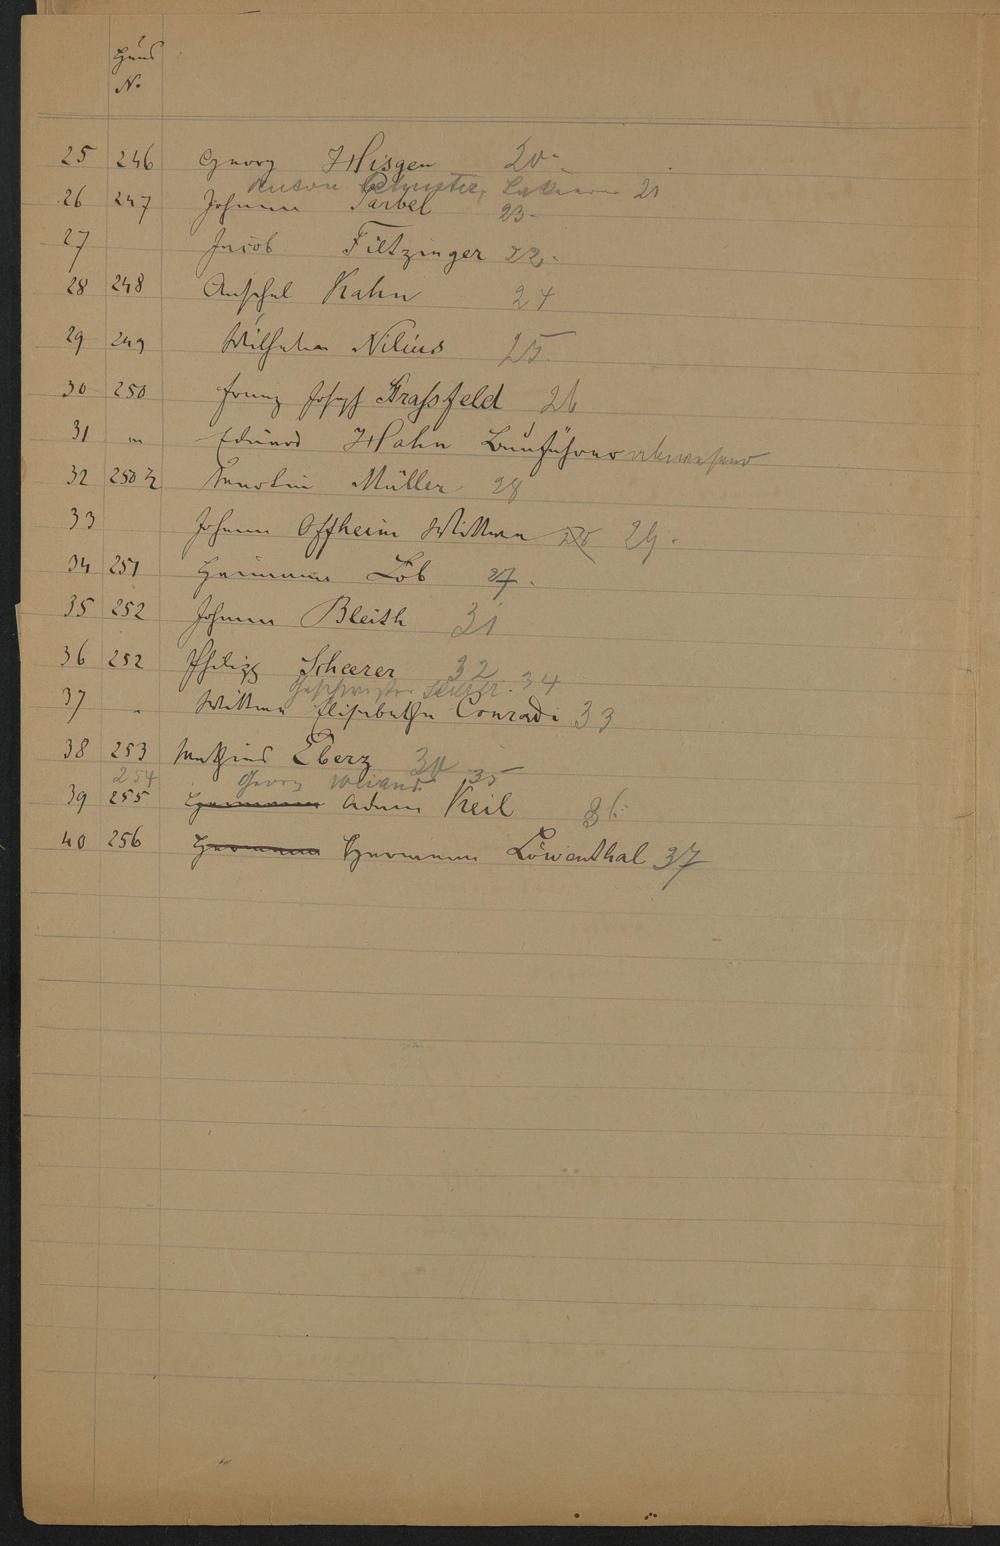 Haus
No.
25 246 Georg Hisgen 20.-
Anton 21
26 247 Johann Sarbel 23.-
27 Jacob Filtzinger 22.-
28 248 Anschel Kahn 24
29 249 Wilhelm Nilius 25
30 250 Franz Joseph Grassfeld 26
31 " Eduard Hahn Bauführer abwesend
32 250 ½ Karolin Müller 28
33 Johann Offheim Wittwe 29.
34 251 Hermann Löb 27.
35 252 Johann Bleith 31
36 252 Philipp Scheerer 32
Geschwister 34
37 " Wittwe Elisabetha Conradi 33
38 253 Mathias Eberz 30
254 Georg Weiand 35
39 255 Hermann Adam Keil 36
40 256 Hermann Hermann Löwenthal 37